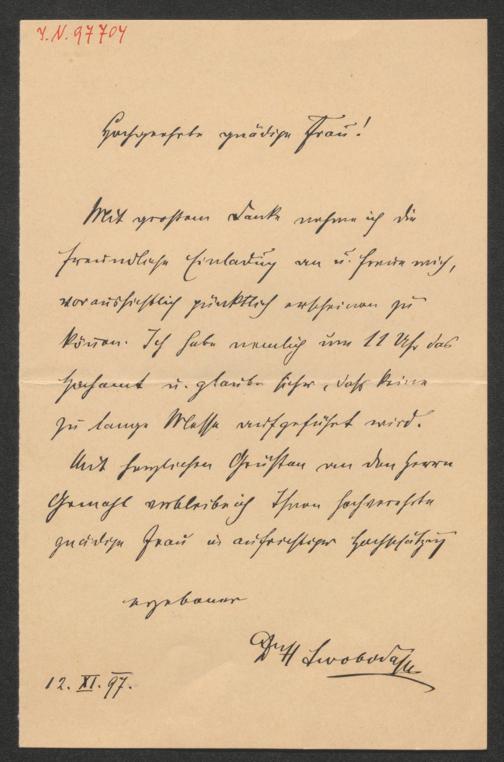 I.N. 97704
Hochgeehrte gnädige Frau!
Mit großem Danke nehme ich die
freundliche Einladung an u. freue mich,
voraussichtlich pünktlich erscheinen zu
können. Ich habe nemlich um 11 Uhr das
Hochamt u. glaube sicher, daß keine
zu lange Messe aufgeführt wird.
Mit herzlichen Grüßen an den Herrn
Gemahl verbleibe ich Ihnen hochverehrte
gnädige Frau in aufrichtiger Hochschätzung
ergebener
Swoboda
12. XI. 97.